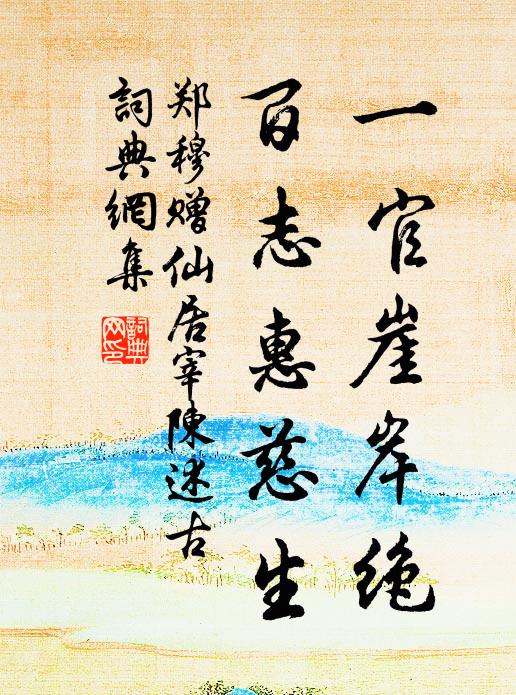 一官崖岸绝
百志惠慈生
郑穆赠仙居宰陳述古
詞典網集
詞典网印